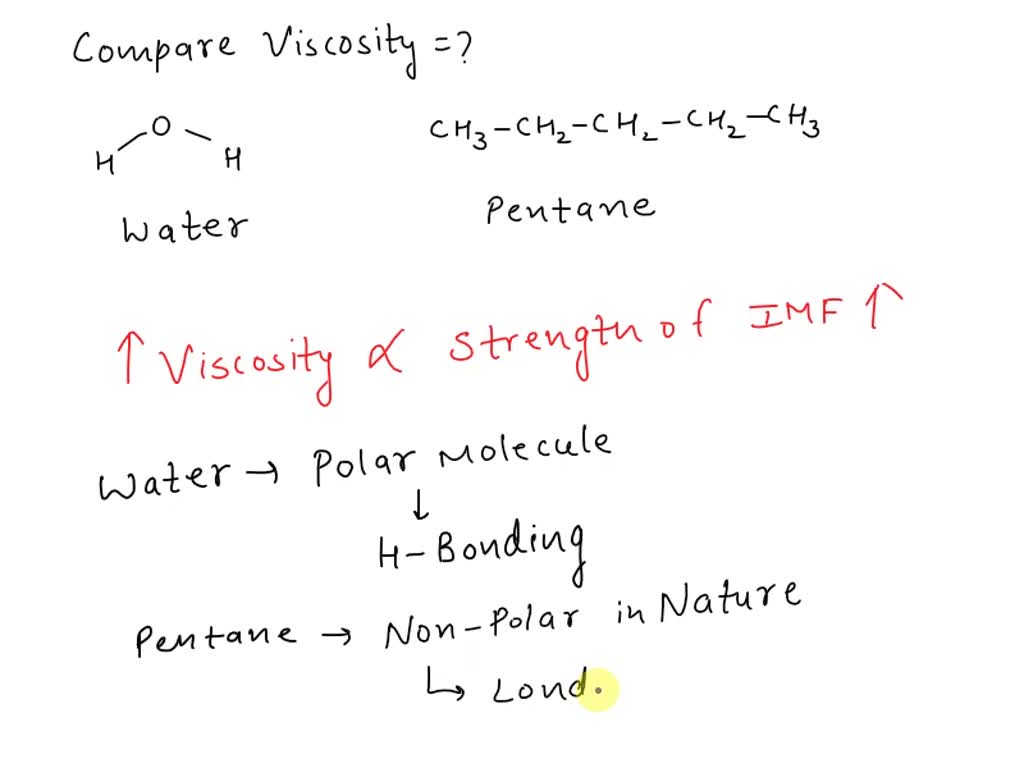 Compare Viscosity =?
O
H H
CH3-CH2-CH2-CH2-CH3
Water
Pentane
↑ Viscosity ∝ Strength of IMF ↑
Water → Polar Molecule
↓
H-Bonding
Pentane → Non-Polar in Nature
↳ Lond.